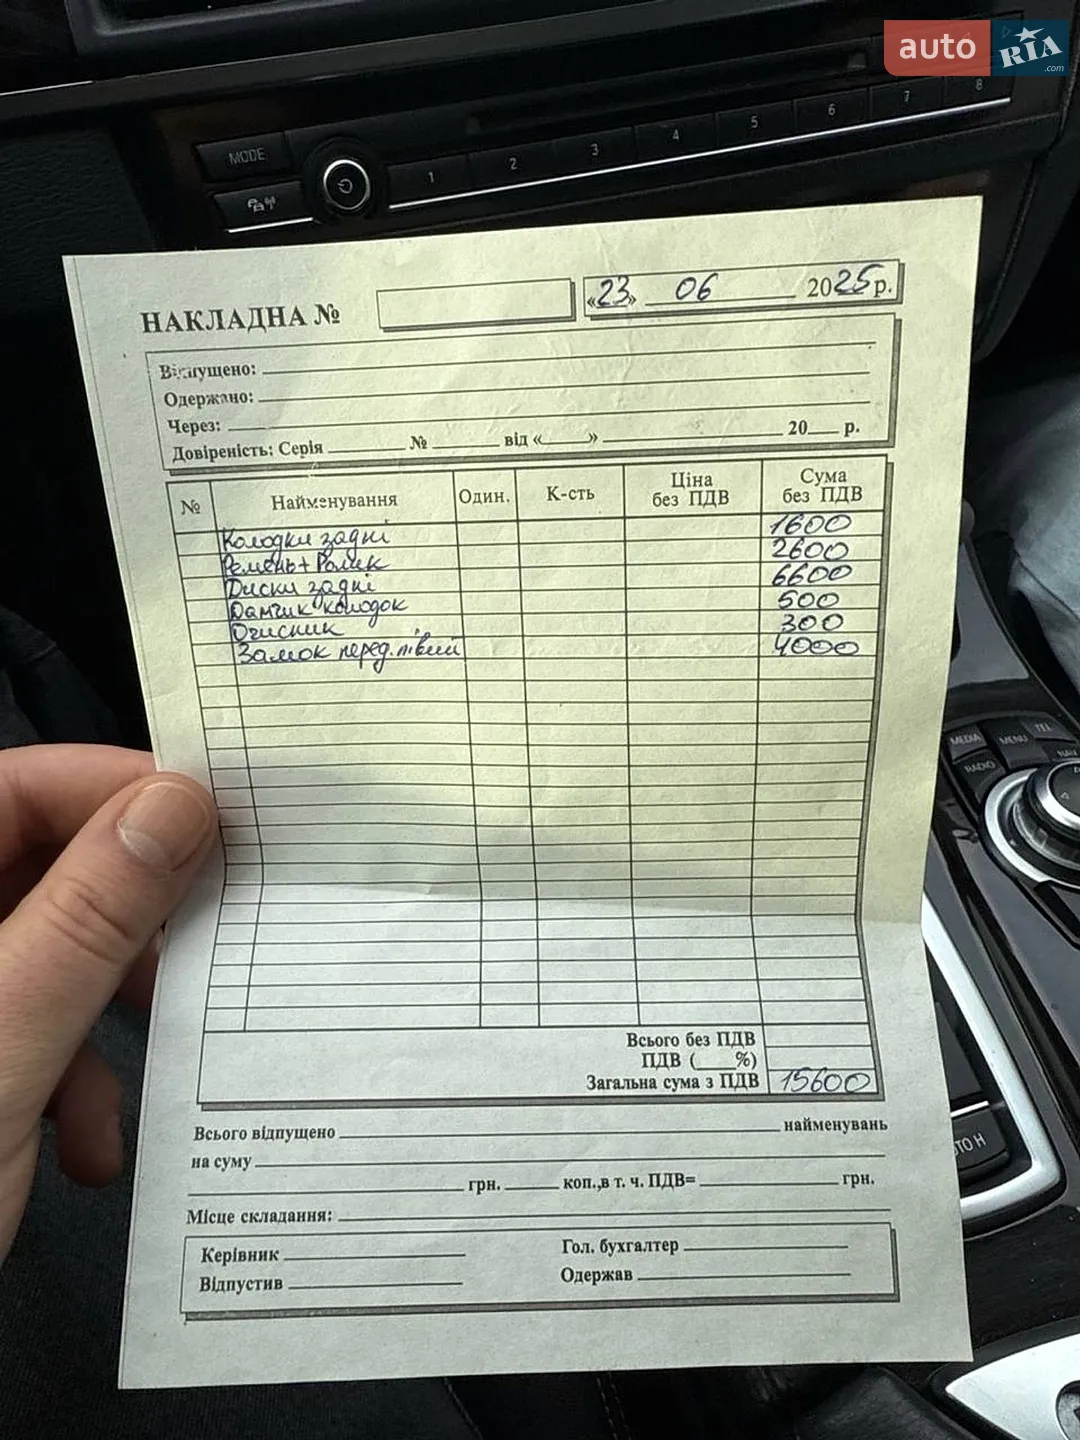 auto RIA .com
MODE 1 2 3 4 5 6 7 8
НАКЛАДНА № «23» 06 2025 р.
Відпущено:
Одержано:
Через:
Довіреність: Серія № від « » 20 р.
№ Найменування Один. К-сть Ціна без ПДВ Сума без ПДВ
Колодки задні 1600
Ремень + Ролик 2600
Диски задні 6600
Датчик колодок 500
Очисник 300
Замок перед. лівий 4000
Всього без ПДВ
ПДВ ( %)
Загальна сума з ПДВ 15600
Всього відпущено найменувань
на суму
грн. коп.,в т. ч. ПДВ= грн.
Місце складання:
Керівник Гол. бухгалтер
Відпустив Одержав
MEDIA MENU TEL
RADIO NAV
AUTO H